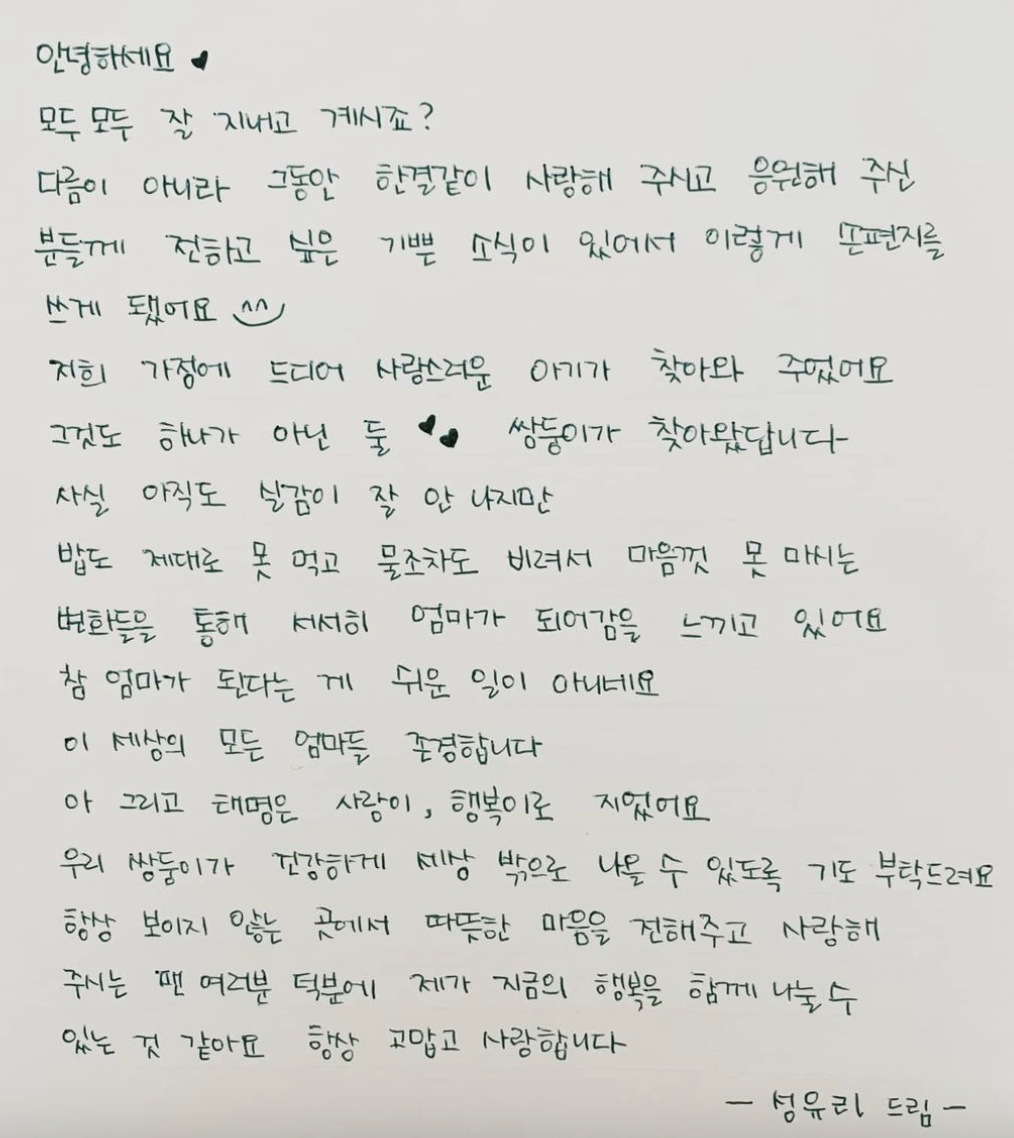 안녕하세요 ♥
모두모두 잘 지내고 계시죠?
다름이 아니라 그동안 한결같이 사랑해 주시고 응원해 주신
분들께 전하고 싶은 기쁜 소식이 있어서 이렇게 손편지를
쓰게 됐어요 ^^
저희 가정에 드디어 사랑스러운 아기가 찾아와 주었어요
그것도 하나가 아닌 둘 ♥♥ 쌍둥이가 찾아왔답니다
사실 아직도 실감이 잘 안 나지만
밥도 제대로 못 먹고 물조차도 비려서 마음껏 못 마시는
변화들을 통해 서서히 엄마가 되어감을 느끼고 있어요
참 엄마가 된다는 게 쉬운 일이 아니네요
이 세상의 모든 엄마들 존경합니다
아 그리고 태명은 사랑이, 행복이로 지었어요
우리 쌍둥이가 건강하게 세상 밖으로 나올 수 있도록 기도 부탁드려요
항상 보이지 않는 곳에서 따뜻한 마음을 전해주고 사랑해
주시는 팬 여러분 덕분에 제가 지금의 행복을 함께 나눌 수
있는 것 같아요 항상 고맙고 사랑합니다
- 성유리 드림 -